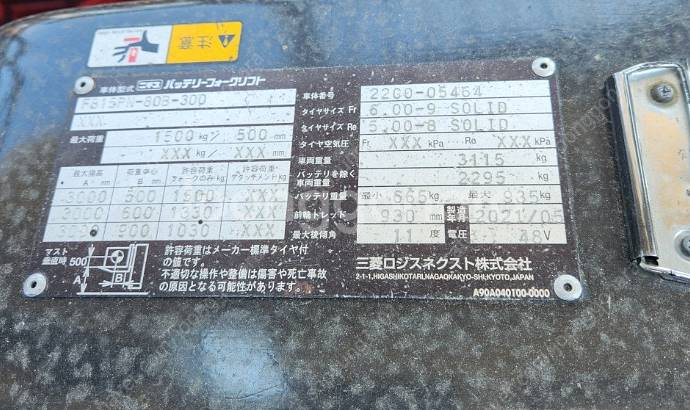 注意
車体型式 ニチユ バッテリーフォークリフト
FB15PN-80B-300
最大荷重 1500 kg/ 500 mm
XXX kg/ XXX mm
最大揚高 A mm 荷重中心 B mm 許容荷重 フォークのみ KG 許容荷重 アタッチメント付 KG
500
600 XXX
900 1030 XXX
マスト垂直時 500 A B
許容荷重はメーカー標準タイヤ付の値です。
不適切な操作や整備は傷害や死亡事故の原因となる可能性があります。
車体番号 22G0-05464
タイヤサイズ Fr 6.00-9 SOLID
タイヤサイズ Re 5.00-8 SOLID
タイヤ空気圧 Fr XXX kPa Re XXX kPa
車両重量 3115 kg
バッテリを除く車両重量 2295 kg
バッテリ重量 最小 665 kg 最大 935 kg
前輪トレッド 930 mm 製造年月 2021/05
最大後傾角 11 度 電圧 48 V
三菱ロジスネクスト株式会社
2-1-1, HIGASHIKOTARI, NAGAOKAKYO-SHI, KYOTO, JAPAN
A90A040100-0000